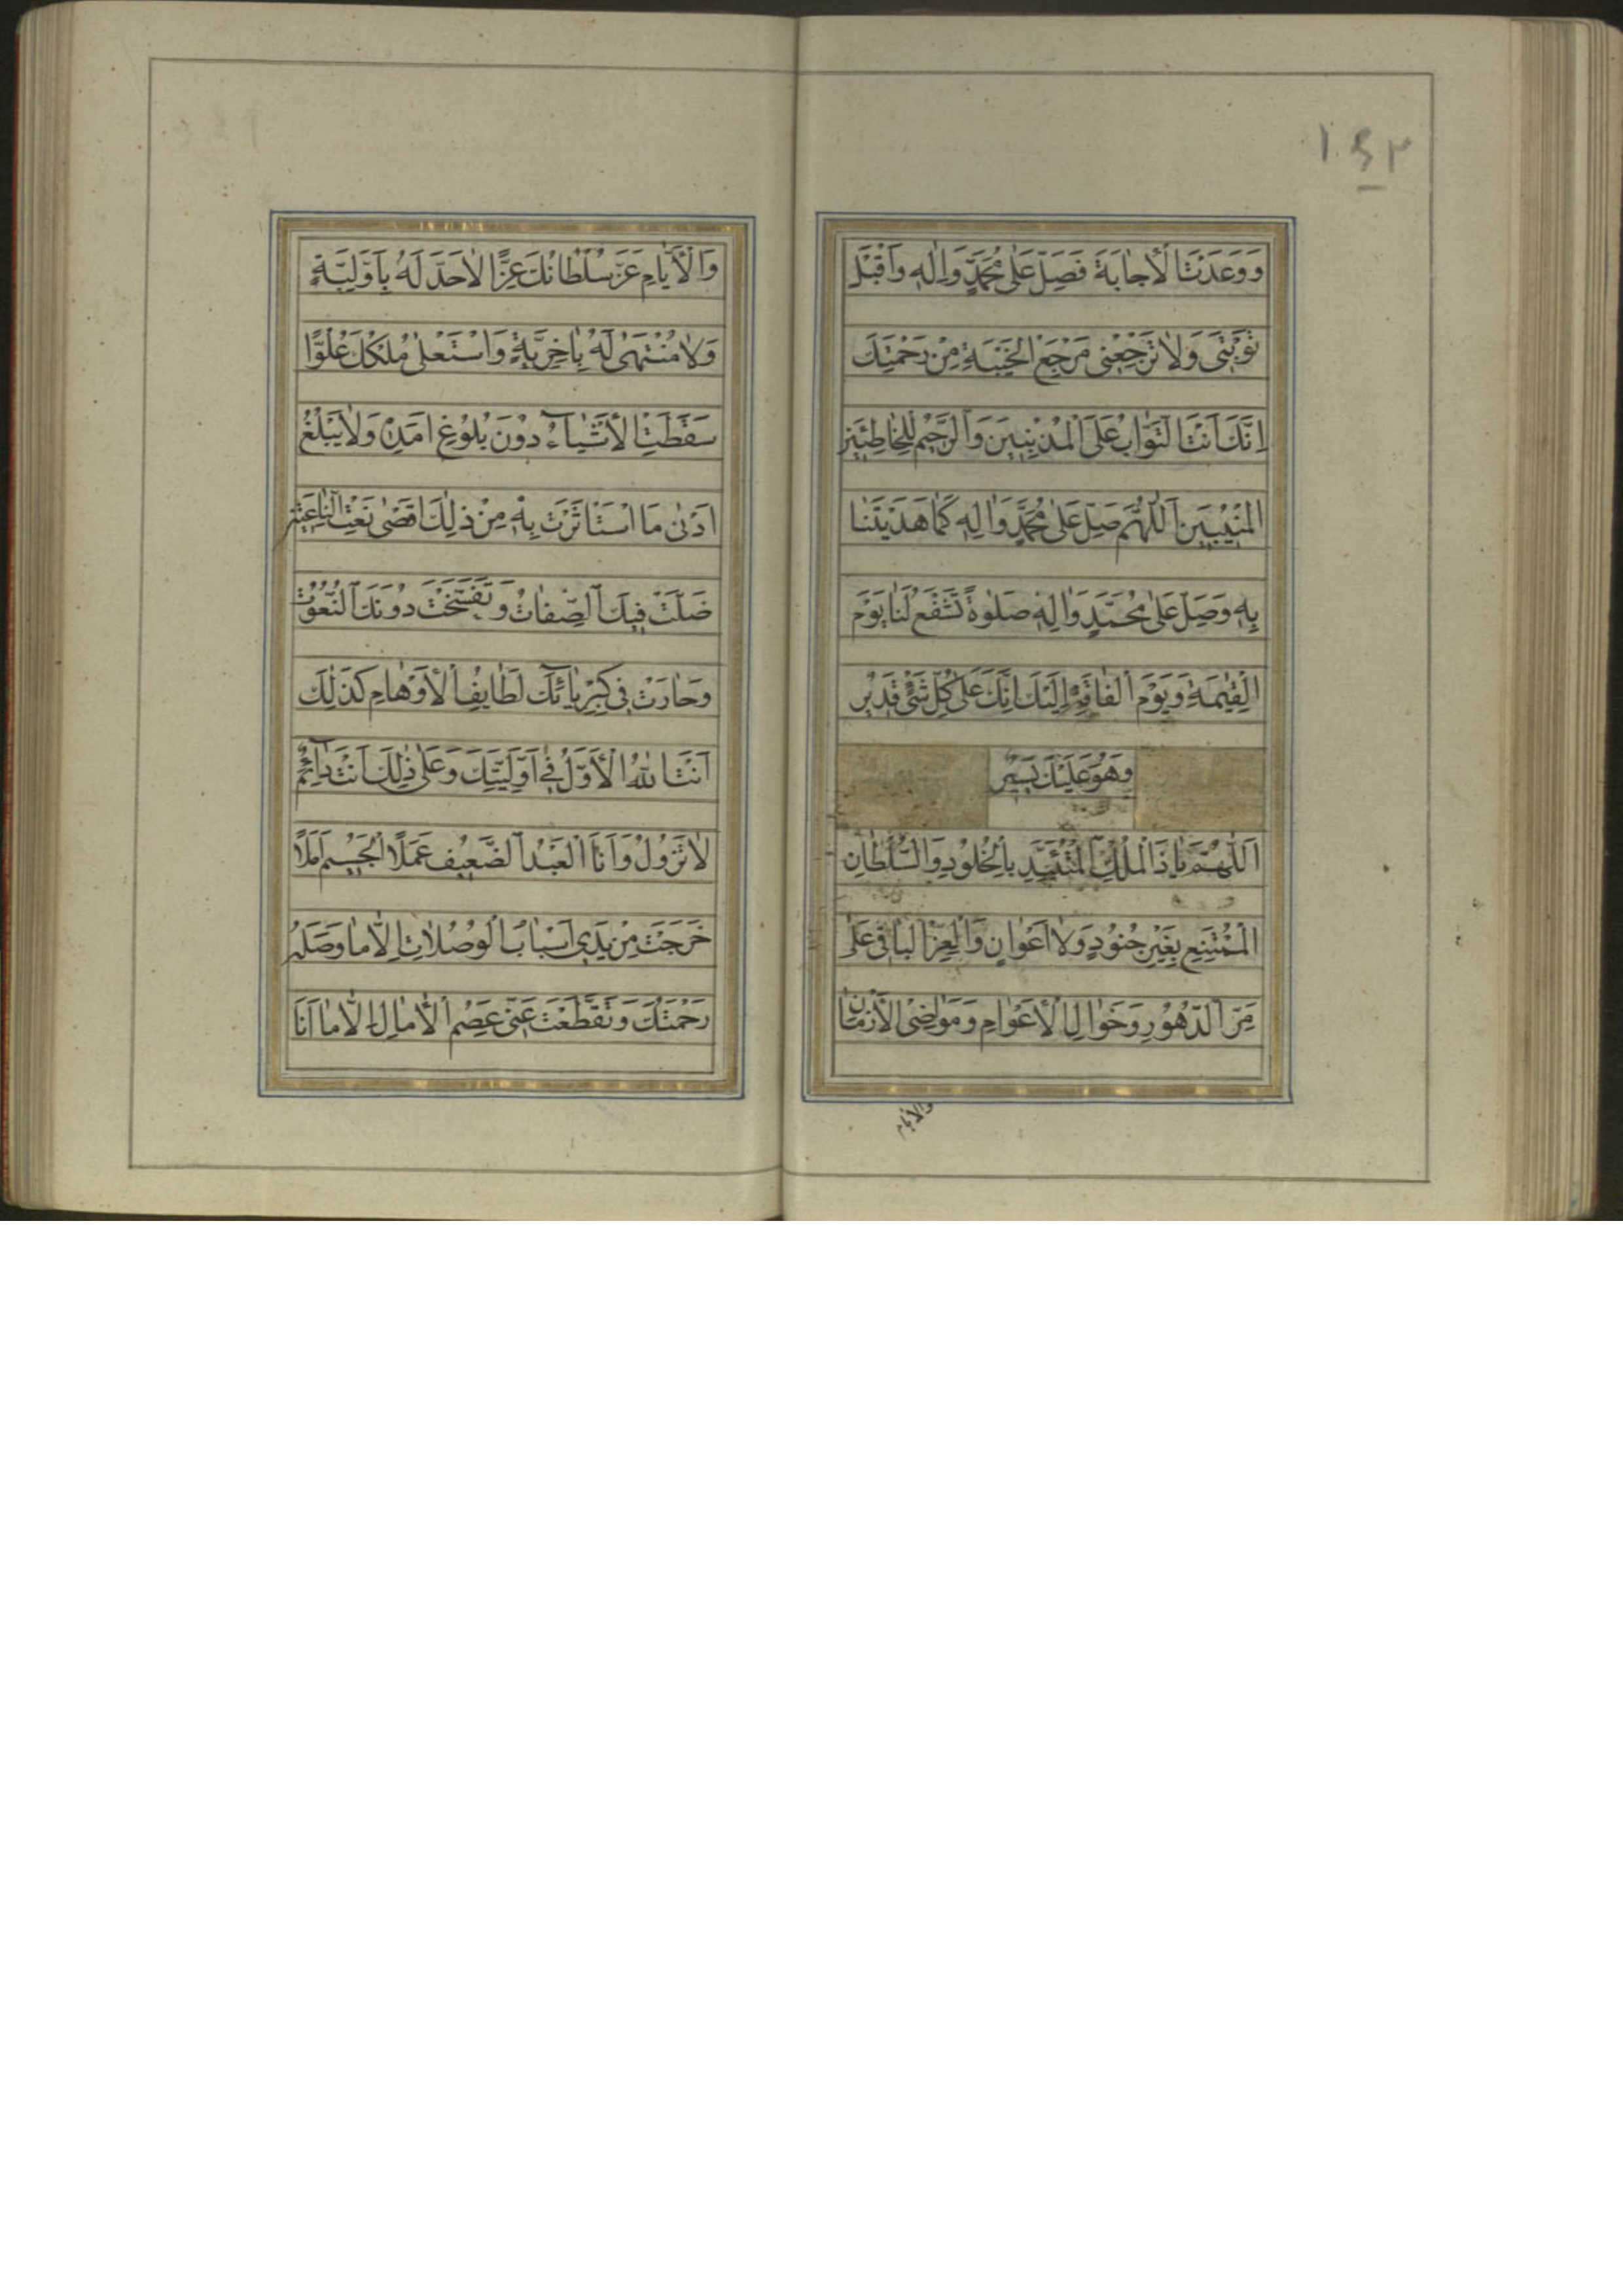 ١٤٣
وَوَعَدْتَ الْاِجابَةَ فَصَلِّ عَلى مُحَمَّدٍ وَالِهِ وَاقْبَلْ
تَوْبَتى وَلا تَرْجِعْنى مَرْجَعَ الْخَيْبَةِ مِنْ رَحْمَتِكَ
اِنَّكَ اَنْتَ التَّوّابُ عَلَى الْمُذْنِبينَ وَالرَّحيمُ لِلْخاطِئينَ
الْمُنيبينَ اَللّهُمَّ صَلِّ عَلى مُحَمَّدٍ وَالِهِ كَما هَدَيْتَنا
بِهِ وَصَلِّ عَلى مُحَمَّدٍ وَالِهِ صَلوةً تَشْفَعُ لَنا يَوْمَ
الْقِيمَةِ وَيَوْمَ الْفاقَةِ اِلَيْكَ اِنَّكَ عَلى كُلِّ شَىْءٍ قَديرٌ
وَهُوَ عَلَيْكَ يَسيرٌ
اَللّهُمَّ يا ذَا الْمُلْكِ الْمُتَئَبِّدِ بِالْخُلُودِ وَالسُّلْطانِ
الْمُمْتَنِعِ بِغَيْرِ جُنُودٍ وَلا اَعْوانٍ وَالْعِزِّ الْباقى عَلى
مَرِّ الدُّهُورِ وَخَوالِى الْاَعْوامِ وَمَواضِى الْاَزْمانِ
والايام
وَالْاَيّامِ عَزَّ سُلْطانُكَ عِزًّا لا حَدَّ لَهُ بِاَوَّلِيَّةٍ
وَلا مُنْتَهى لَهُ بِاخِرِيَّةٍ وَاسْتَعْلى مُلْكُكَ عُلُوًّا
سَقَطَتِ الْاَشْياءُ دُونَ بُلُوغِ اَمَدِهِ وَلا يَبْلُغُ
اَدْنى مَا اسْتَأْثَرْتَ بِهِ مِنْ ذلِكَ اَقْصى نَعْتِ النّاعِتينَ
ضَلَّتْ فيكَ الصِّفاتُ وَتَفَسَّخَتْ دُونَكَ النُّعُوتُ
وَحارَتْ فى كِبْرِيائِكَ لَطايِفُ الْاَوْهامِ كَذلِكَ
اَنْتَ اللهُ الْاَوَّلُ فى اَوَّلِيَّتِكَ وَعَلى ذلِكَ اَنْتَ دائِمٌ
لا تَزُولُ وَاَنَا الْعَبْدُ الضَّعيفُ عَمَلًا الْجَسيمُ اَمَلًا
خَرَجَتْ مِنْ يَدى اَسْبابُ الْوُصُلاتِ اِلّا ما وَصَلَهُ
رَحْمَتُكَ وَتَقَطَّعَتْ عَنّى عِصَمُ الْامالِ اِلّا ما اَنَا